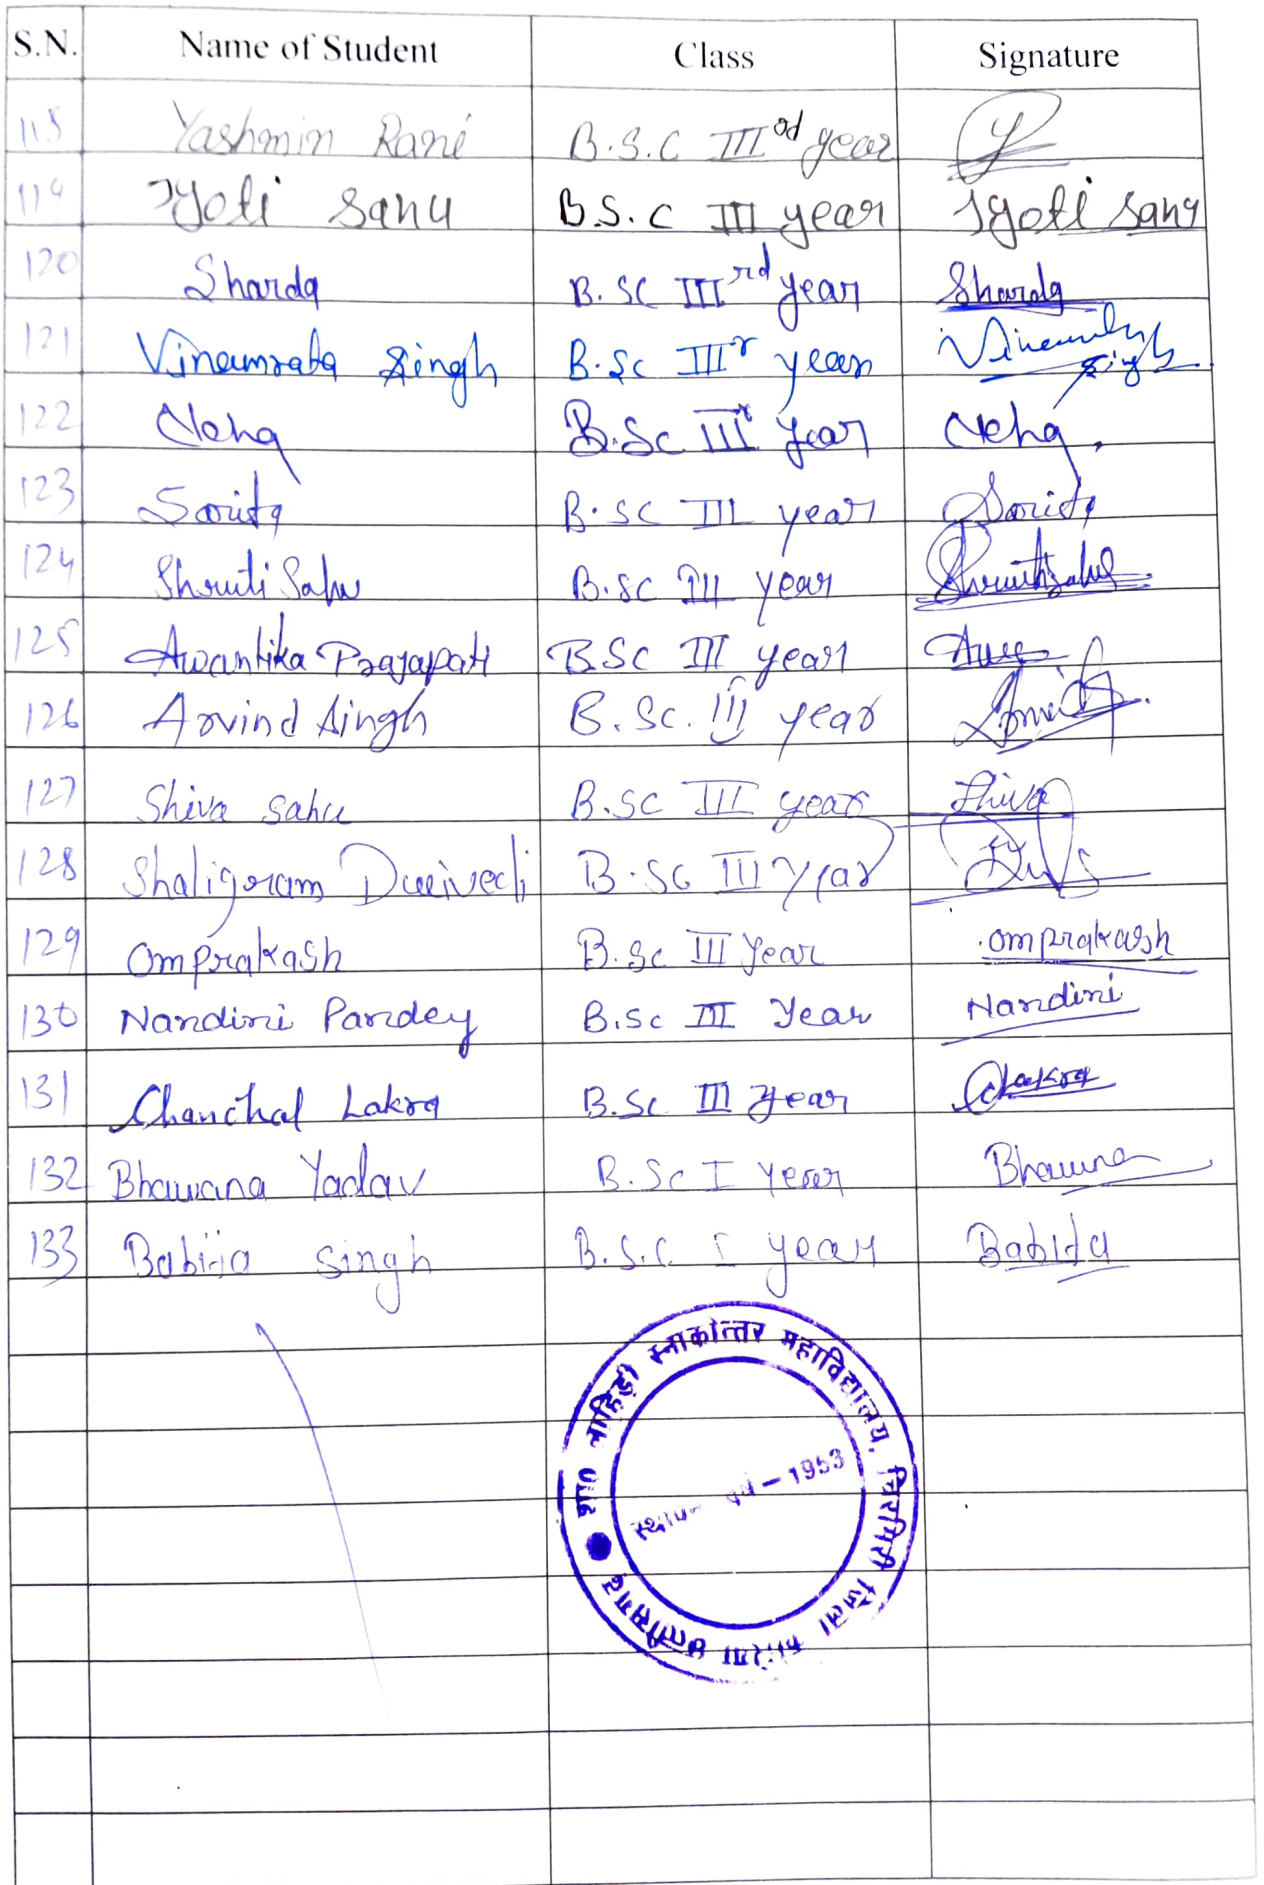 S.N. Name of Student Class Signature
115 Yashmin Rani B.S.C IIIrd year
119 Jyoti sahu B.S.C III year Jyoti sahu
120 Sharda B.SC IIIrd year Sharda
121 Vinamrata Singh B.Sc IIIr year Singh
122 Neha B.Sc IIIr year Neha
123 Sarita B.SC III year Sarita
124 Shruti Sahu B.SC III year Shruti Sahu
125 Awantika Prajapati BSC III year
126 Arvind Singh B.Sc. III year
127 Shiva sahu B.SC III year Shiva
128 Shaligram Dwivedi B.SC III Year
129 Omprakash B.Sc III Year omprakash
130 Nandini Pandey B.Sc III Year Nandini
131 Chanchal Lakra B.Sc III year Lakra
132 Bhawana Yadav B.Sc I Year Bhawna
133 Babita Singh B.S.C I year Babita
शास0 लाहिड़ी स्नाकोत्तर महाविद्यालय, चिरमिरी जिला कोरिया छत्तीसगढ़
वर्ष – 1953